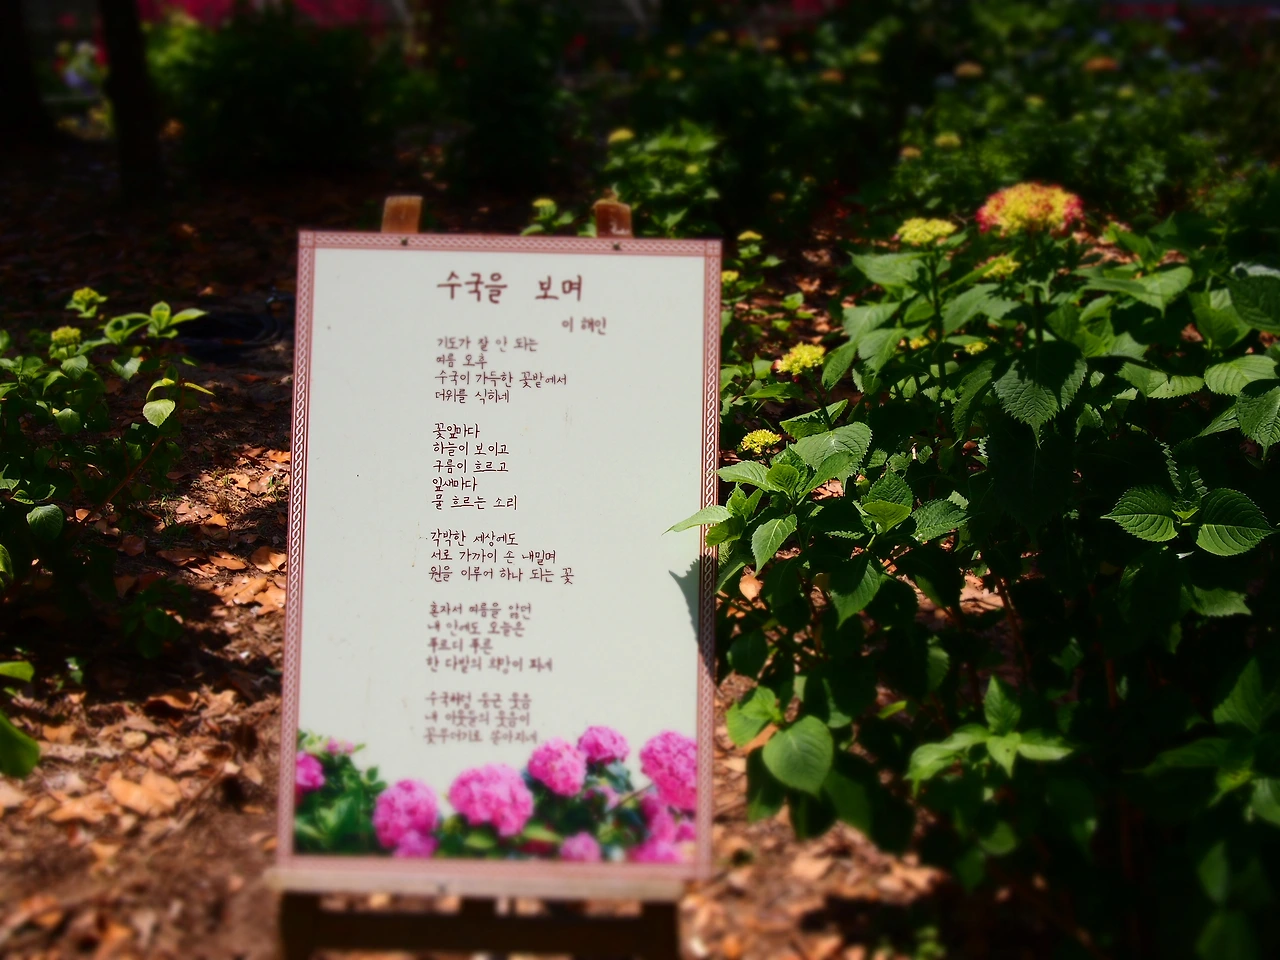 수국을 보며
이 해인
기도가 잘 안 되는
여름 오후
수국이 가득한 꽃밭에서
더위를 식히네
꽃잎마다
하늘이 보이고
구름이 흐르고
잎새마다
물 흐르는 소리
각박한 세상에도
서로 가까이 손 내밀며
원을 이루어 하나 되는 꽃
혼자서 여름을 앓던
내 안에도 오늘은
푸르디 푸른
한 다발의 희망이 피네
수국처럼 둥근 웃음
내 이웃들의 웃음이
꽃무더기로 쏟아지네